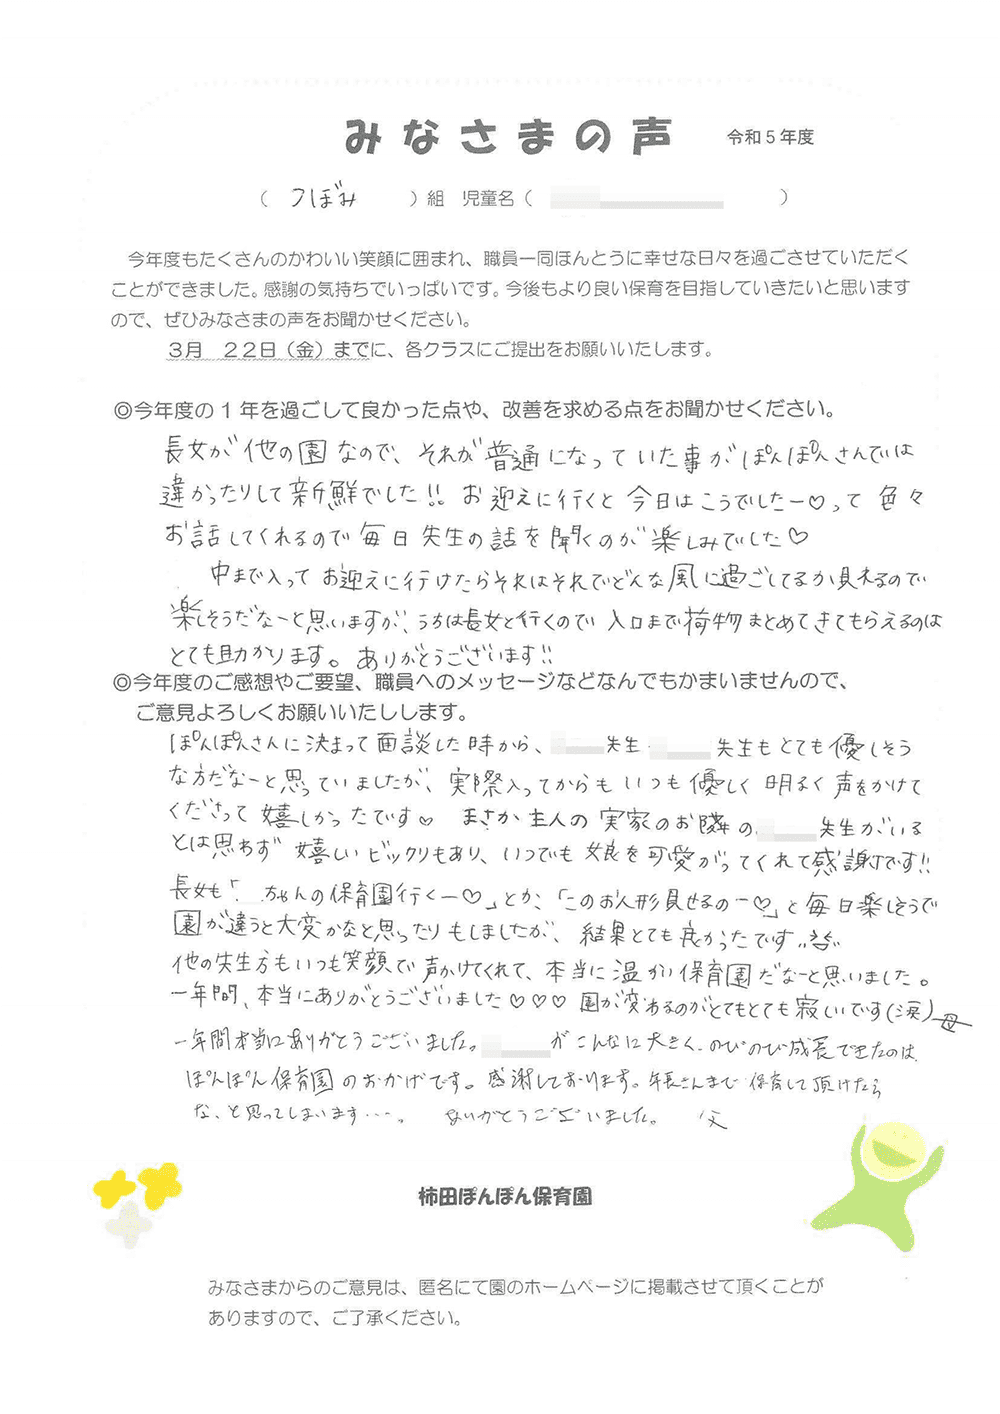 みなさまの声 令和5年度
（ つぼみ ）組 児童名（ ）
今年度もたくさんのかわいい笑顔に囲まれ、職員一同ほんとうに幸せな日々を過ごさせていただく
ことができました。感謝の気持ちでいっぱいです。今後もより良い保育を目指していきたいと思います
ので、ぜひみなさまの声をお聞かせください。
3月 22日（金）までに、各クラスにご提出をお願いいたします。
◎今年度の1年を過ごして良かった点や、改善を求める点をお聞かせください。
長女が他の園なので、それが普通になっていた事がぽんぽんさんでは
違かったりして新鮮でした!! お迎えに行くと今日はこうでしたー♡って色々
お話してくれるので毎日先生の話を聞くのが楽しみでした♡
中まで入ってお迎えに行けたらそれはそれでどんな風に過ごしてるか見れるので
楽しそうだなーと思いますが、うちは長女と行くので入口まで荷物まとめてきてもらえるのは
とても助かります。ありがとうございます!!
◎今年度のご感想やご要望、職員へのメッセージなどなんでもかまいませんので、
ご意見よろしくお願いいたしします。
ぽんぽんさんに決まって面談した時から、 先生 先生もとても優しそう
な方だなーと思っていましたが、実際入ってからもいつも優しく明るく声をかけて
くださって嬉しかったです♡ まさか主人の実家のお隣の 先生がいる
とは思わず嬉しいビックリもあり、いつでも娘を可愛がってくれて感謝です!!
長女も「 ちゃんの保育園行くー♡」とか、「このお人形見せるのー♡」と毎日楽しそうで
園が違うと大変かなと思ったりもしましたが、結果とても良かったです
他の先生方もいつも笑顔で声かけてくれて、本当に温かい保育園だなーと思いました。
一年間、本当にありがとうございました♡♡♡ 園が変わるのがとてもとても寂しいです(涙) 母
一年間本当にありがとうございました。 がこんなに大きく、のびのび成長できたのは、
ぽんぽん保育園のおかげです。感謝しております。年長さんまで保育して頂けたら
な、と思ってしまいます…。 ありがとうございました。 父
柿田ぽんぽん保育園
みなさまからのご意見は、匿名にて園のホームページに掲載させて頂くことが
ありますので、ご了承ください。